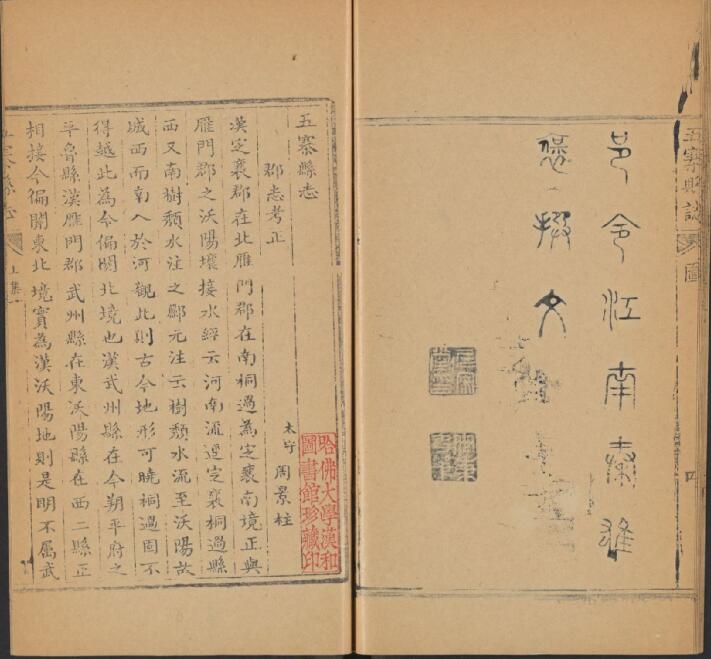 五寨縣誌
圖
四
邑令江南秦雄
褒 文
五寨縣志
郡志考正
太守 周景柱
哈佛大學漢和
圖書館珍藏印
漢定襄郡在北雁門郡在南桐過為定襄南境正與
雁門郡之沃陽壤接水經云河南流逕定襄桐過縣
西又南樹頹水注之酈元注云樹頹水流至沃陽故
城西而南入於河觀此則古今地形可曉桐過固不
得越此為今偏關北境也漢武州縣在今朔平府之
平魯縣漢雁門郡武州縣在東沃陽縣在西二縣正
相接今偏關東北境實為漢沃陽地則是明不屬武
五寨縣志
上集